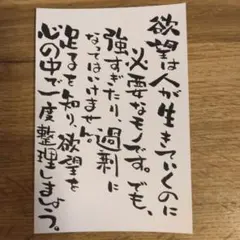 欲望は人が生きていくのに
必要なモノです。でも、
強すぎたり、過剰に
なってはいけません。
足るを知り、欲望を
心の中で一度整理しましょう。